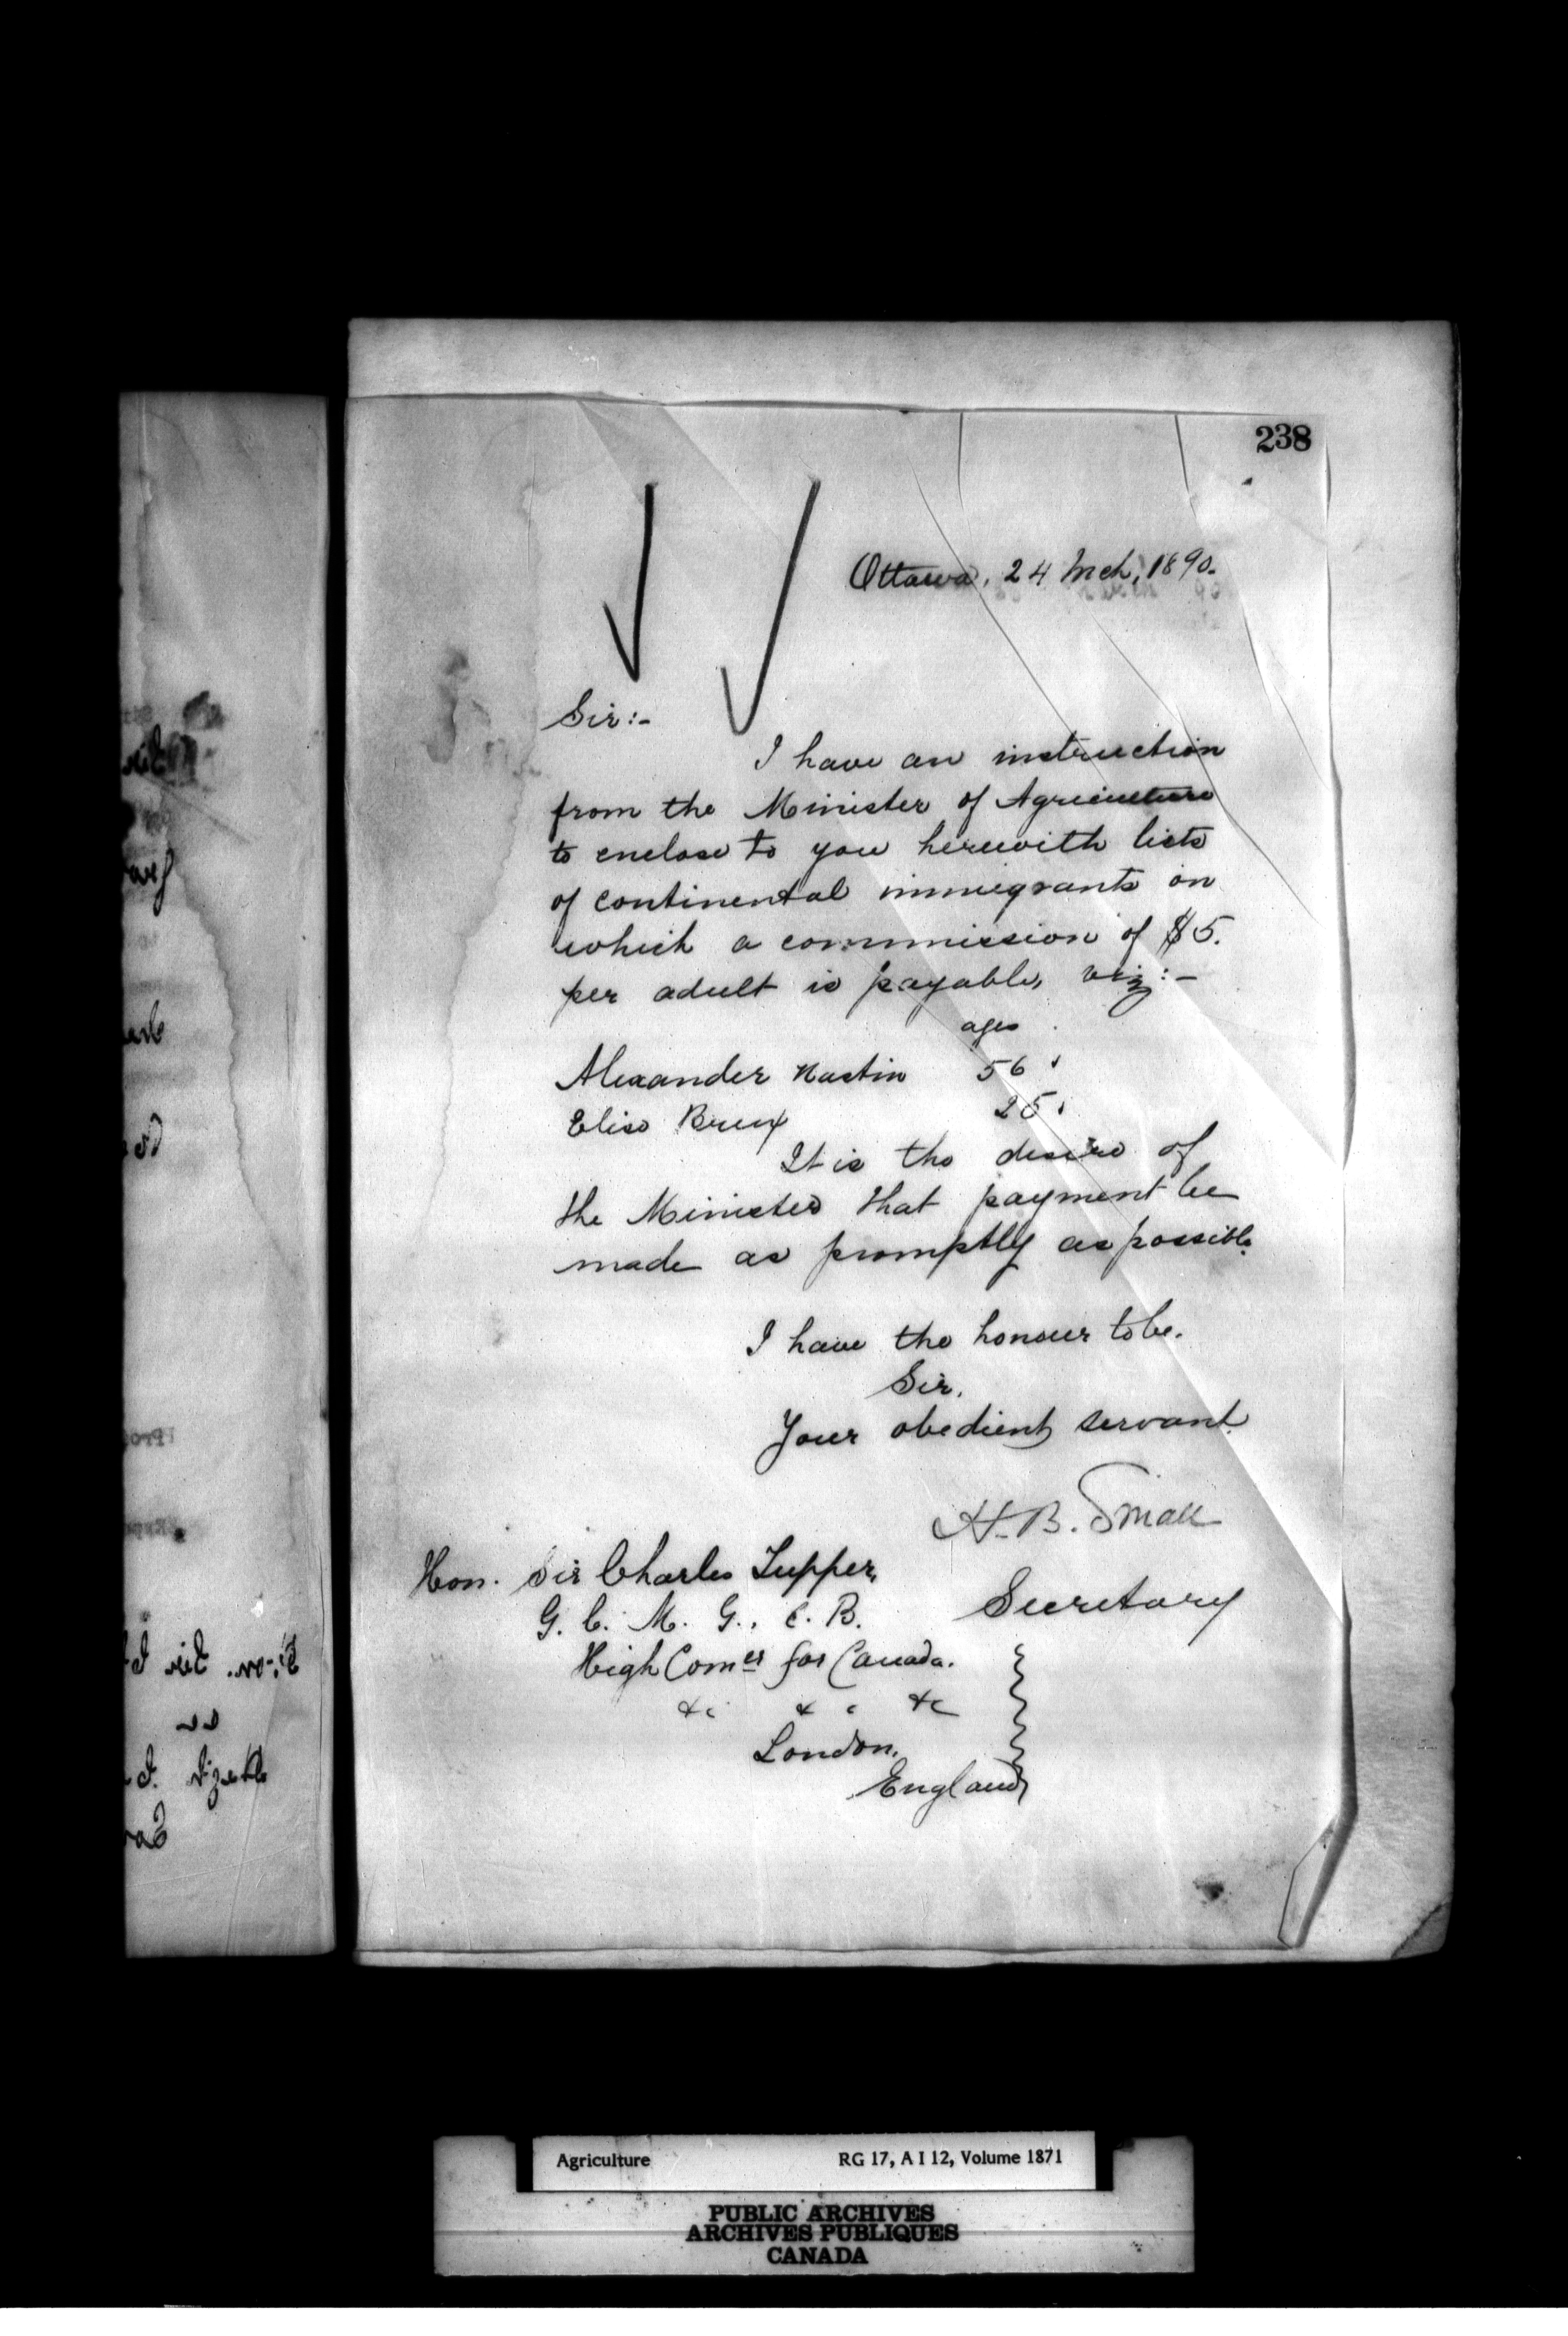 238
Ottawa, 24 Mch, 1890.
Sir:-
I have an instruction
from the Minister of Agriculture
to enclose to you herewith lists
of continental immigrants on
which a commission of $5.
per adult is payable, viz:-
ages
Alexander Nastin 56
Elise Breux 25
It is the desire of
the Minister that payment be
made as promptly as possible.
I have the honour to be.
Sir.
Your obedient servant.
H. B. Small
Secretary
Hon. Sir Charles Tupper,
G. C. M. G., C. B.
High Comer for Canada.
&c &c &c
London.
England
Agriculture RG 17, A I 12, Volume 1871
PUBLIC ARCHIVES
ARCHIVES PUBLIQUES
CANADA